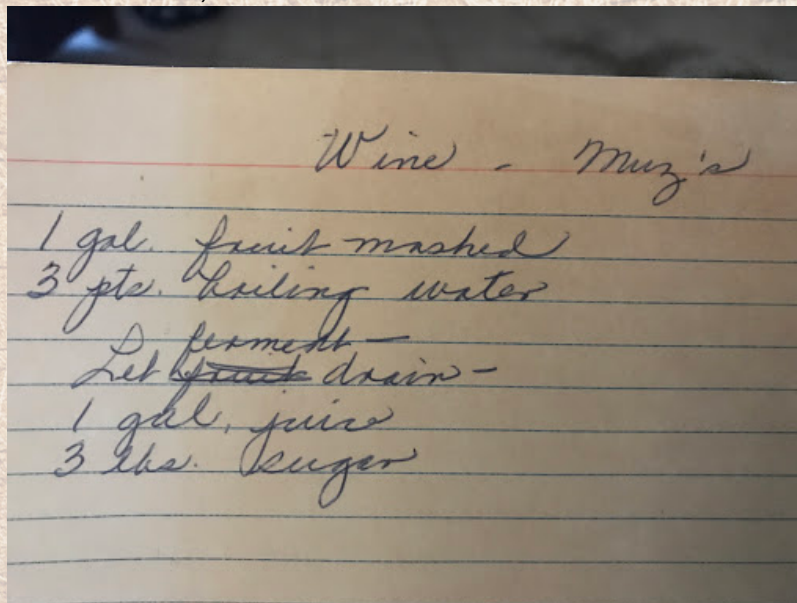 Wine - Muz's
1 gal. fruit mashed
3 pts. boiling water
ferment -
Let fruit drain -
1 gal. juice
3 lbs. sugar